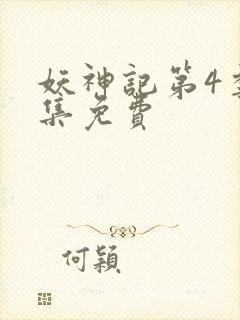 妖神記第4季
集免費
何穎